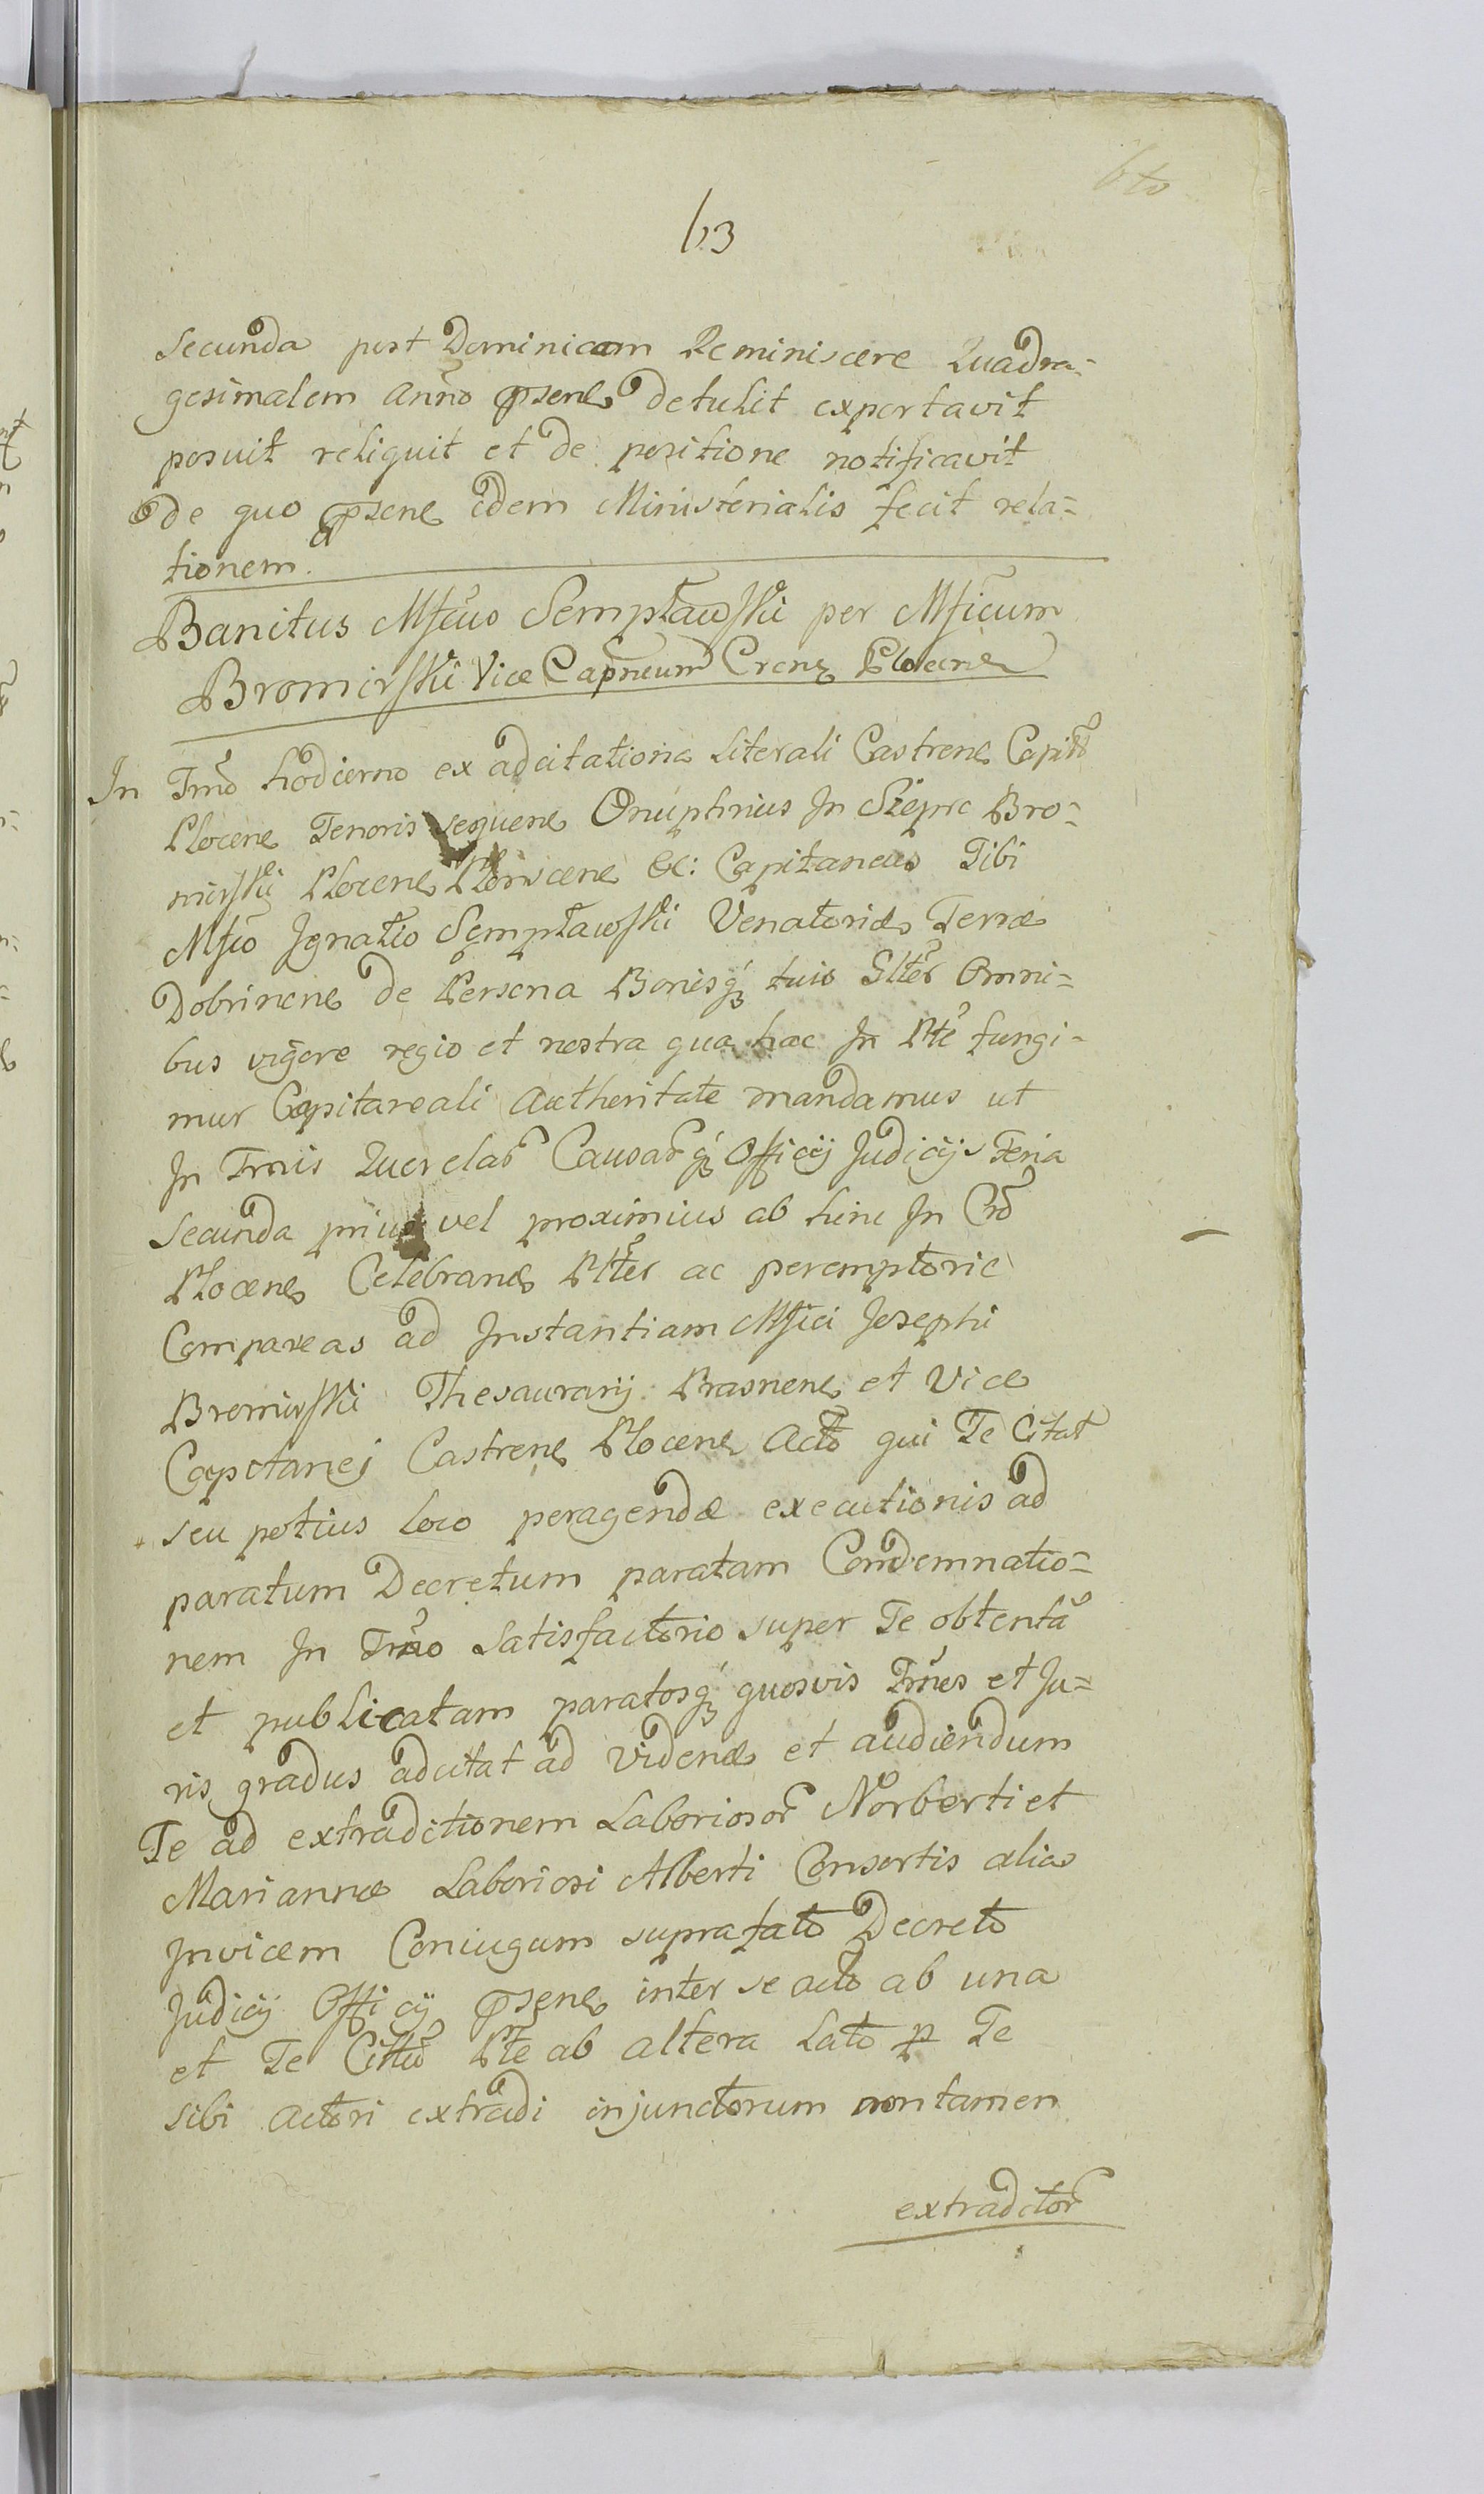 63
secunda post Dominicam Reminiscere Quadra=
gesimalem Anno psene detulit exportavit
posuit reliquit et de positione notificavit
de quo psene idem Ministerialis fecit rela=
tionem.
Banitus Mfcus Sempławski per Mficum
Bromirski Vice Capneum Crens Plocene
In Tmo hodierno ex adcitatione literali Castrene Capittt
Plocene Tenoris sequene Onuphrius In Sieprc Bro=
mirski Plocene &c: Capitaneus Tibi
Mfco Ignatio Sempławski Venatoridæ Terræ
Dobrinene de Persona Bonisq tuis Glter Omni=
bus vigore regio et nostra qua hac In Pte fungi=
mur Capitaneali Authoritate mandamus ut
In Tmis Querelar Causarq Officij Judicij Feria
secunda prius vel proximius ab hinc In Cro
Plocene Celebrand Pltter ac peremptorie
Compareas ad Instantiam Mfici Josephi
Bromirski Thesaurarij Prasnene et Vice
Capitanej Castrene Plocene Acto qui Te Citat
seu potius loco peragendæ executionis ad
paratum Decretum paratam Condemnatio=
nem In Tmo Satisfactorio super Te obtenta
et publicatam paratosq quosvis Tmnos et Ju=
ris gradus adcitat ad Videnđ et audiendum
Te ad extraditionem Laboriosor Norberti et
Mariannæ Laboriosi Alberti Consortis alias
Invicem Coniugum suprafato Decreto
Judicij Officij psene inter se acto ab una
et Te Cittto Pte ab altera lato p Te
sibi Actori extradi injunctorum non tamen
extraditor